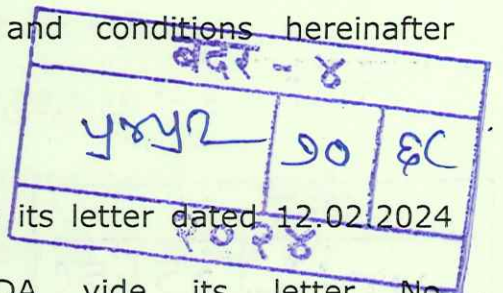 and conditions hereinafter
बदर - ४
१० ६८
its letter dated 12.02.2024
२०२४
DA vide its letter No